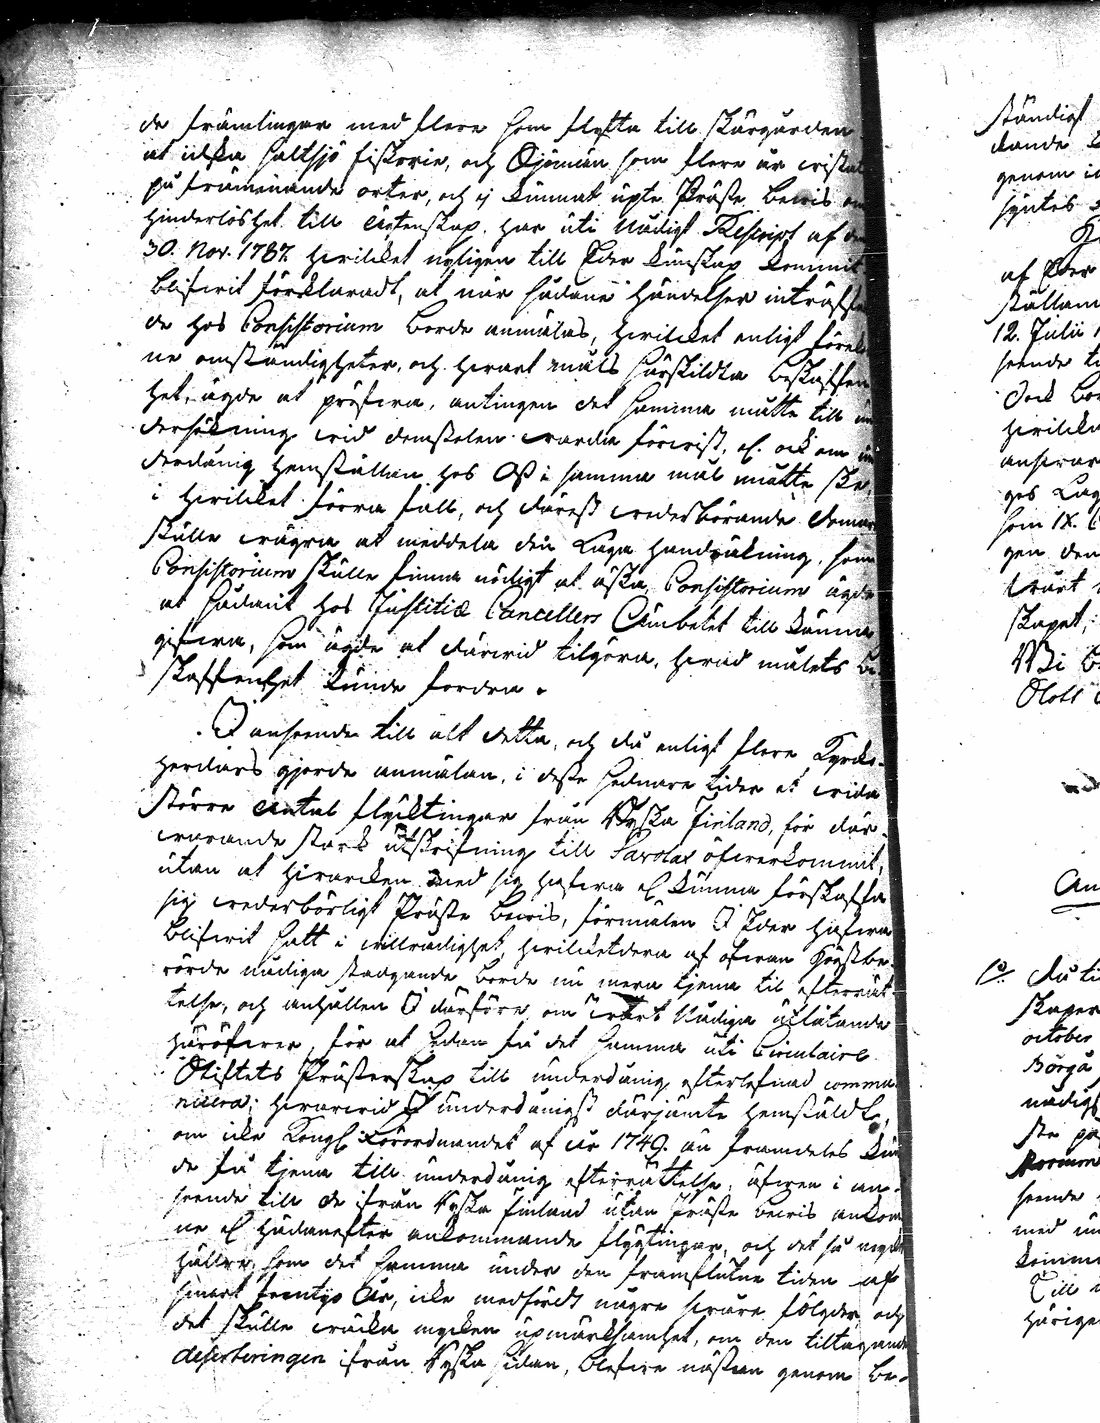 de främlingar med flere som flytta till skärgården
at idka saltsjö fiskerie, och Sjömän som flere år vistat
på främmande orter, och ej kunnat upte Präste bevis om
hinderlöshet till ägtenskap, har uti Nådigt Rescript af den
30. Nov. 1787. hvilket nyligen till Eder kunskap kommit
blifvit förklaradt, at när sådane händelser inträffa
de hos Consistorium borde anmälas, hvilket enligt före
ne omständigheter, och hvart måls särskildta beskaffen
het, ägde at pröfva, antingen det samma måtte till un
dersökning vid domstolen varda förvist, el. ock om un
derdånig hemställan hos Oss i samma mål måtte ske,
i hvilket förra fall, och därest vederbörande domare
skulle vägra at meddela den Laga handräkning, som
Consistorium skulle finna nödigt at äska, Consistorium ägde
at sådant hos Justitiæ Cancellers Embetet till känna
gifva, som ägde at därvid tilgöra, hvad målets be-
skaffenhet kunde fordra.
I anseende till alt detta, och då enligt flere Kyrko-
herdars gjorde anmälan, i desse sednare tider et vida
större antal flyktingar från Ryska Finland, för där-
varande stark utskrifning till Savolax öfverkommit,
utan at hvarken med sig hafva el. kunna förskaffa
sig vederbörligt Präste bevis, förmälen I Eder hafva
blifvit satt i villrådighet, hvilketdera af ofvan högstbe-
rörde nådiga stadgande borde nu mera tjena til efterrät-
telse, och anhållen I därföre om vårt Nådiga utlåtande
häröfver, för at sedan få det samma uti Circulaire
Stiftets Prästerskap till underdånig efterlefnad commu-
nicera; hvarvid I underdånigst därjämte hemstäldt,
om icke Kongl. Förordnandet af år 1749. än framdeles kun
de få tjena till underdånig efterrättelse, äfven i an-
seende till de ifrån Ryska Finland utan Präste bevis ankom
ne el. hädanefter ankommande flyktingar, och det så mycket
hällre, som det samma under den framflutne tiden af
snart fyratio år, icke medfördt några svåra följder, och
det skulle väcka mycken upmärksamhet, om den tiltagande
deserteringen ifrån Ryska sidan, blefve nästan genom be-
ständigt
kande
genom
syntes
af Eder
ställan
12. Julii
seende
dock
hvilka
ansvar
ges Lag
som IX.
gen den
skapet,
Wi
Slott
1o. Då
skaper
october
Borgå
nådigs
seende
med
komm
Till
härige